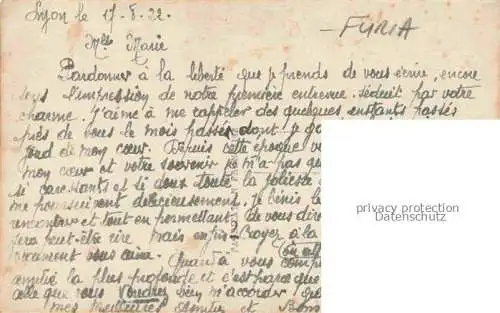 Lyon le 17-8-22.
- FURIA
Mlle Marie
Pardonner à la liberté que je prends de vous écrire, encore
sous l'impression de notre première entrevue. séduit par votre
charme. J'aime à me rappeler des quelques instants passés
près de vous le mois passé dont je
fond de mon cœur. Depuis cette époque
mon cœur et votre souvenir ne m'a pas
si caressants et si doux toute la
me poursuivent délicieusement. Je bénis
rencontre et tout en permettant de vous dire
fera peut-être rire mais enfin Croyer à la
vraiment vous aime.
Quand à vous
amitié la plus profonde et c'est parce que
celle que vous voudrez bien m'accorder
mes meilleures amitiés et
privacy protection
Datenschutz